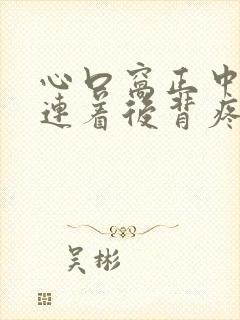 心口窝正中
连着后背疼
吴彬